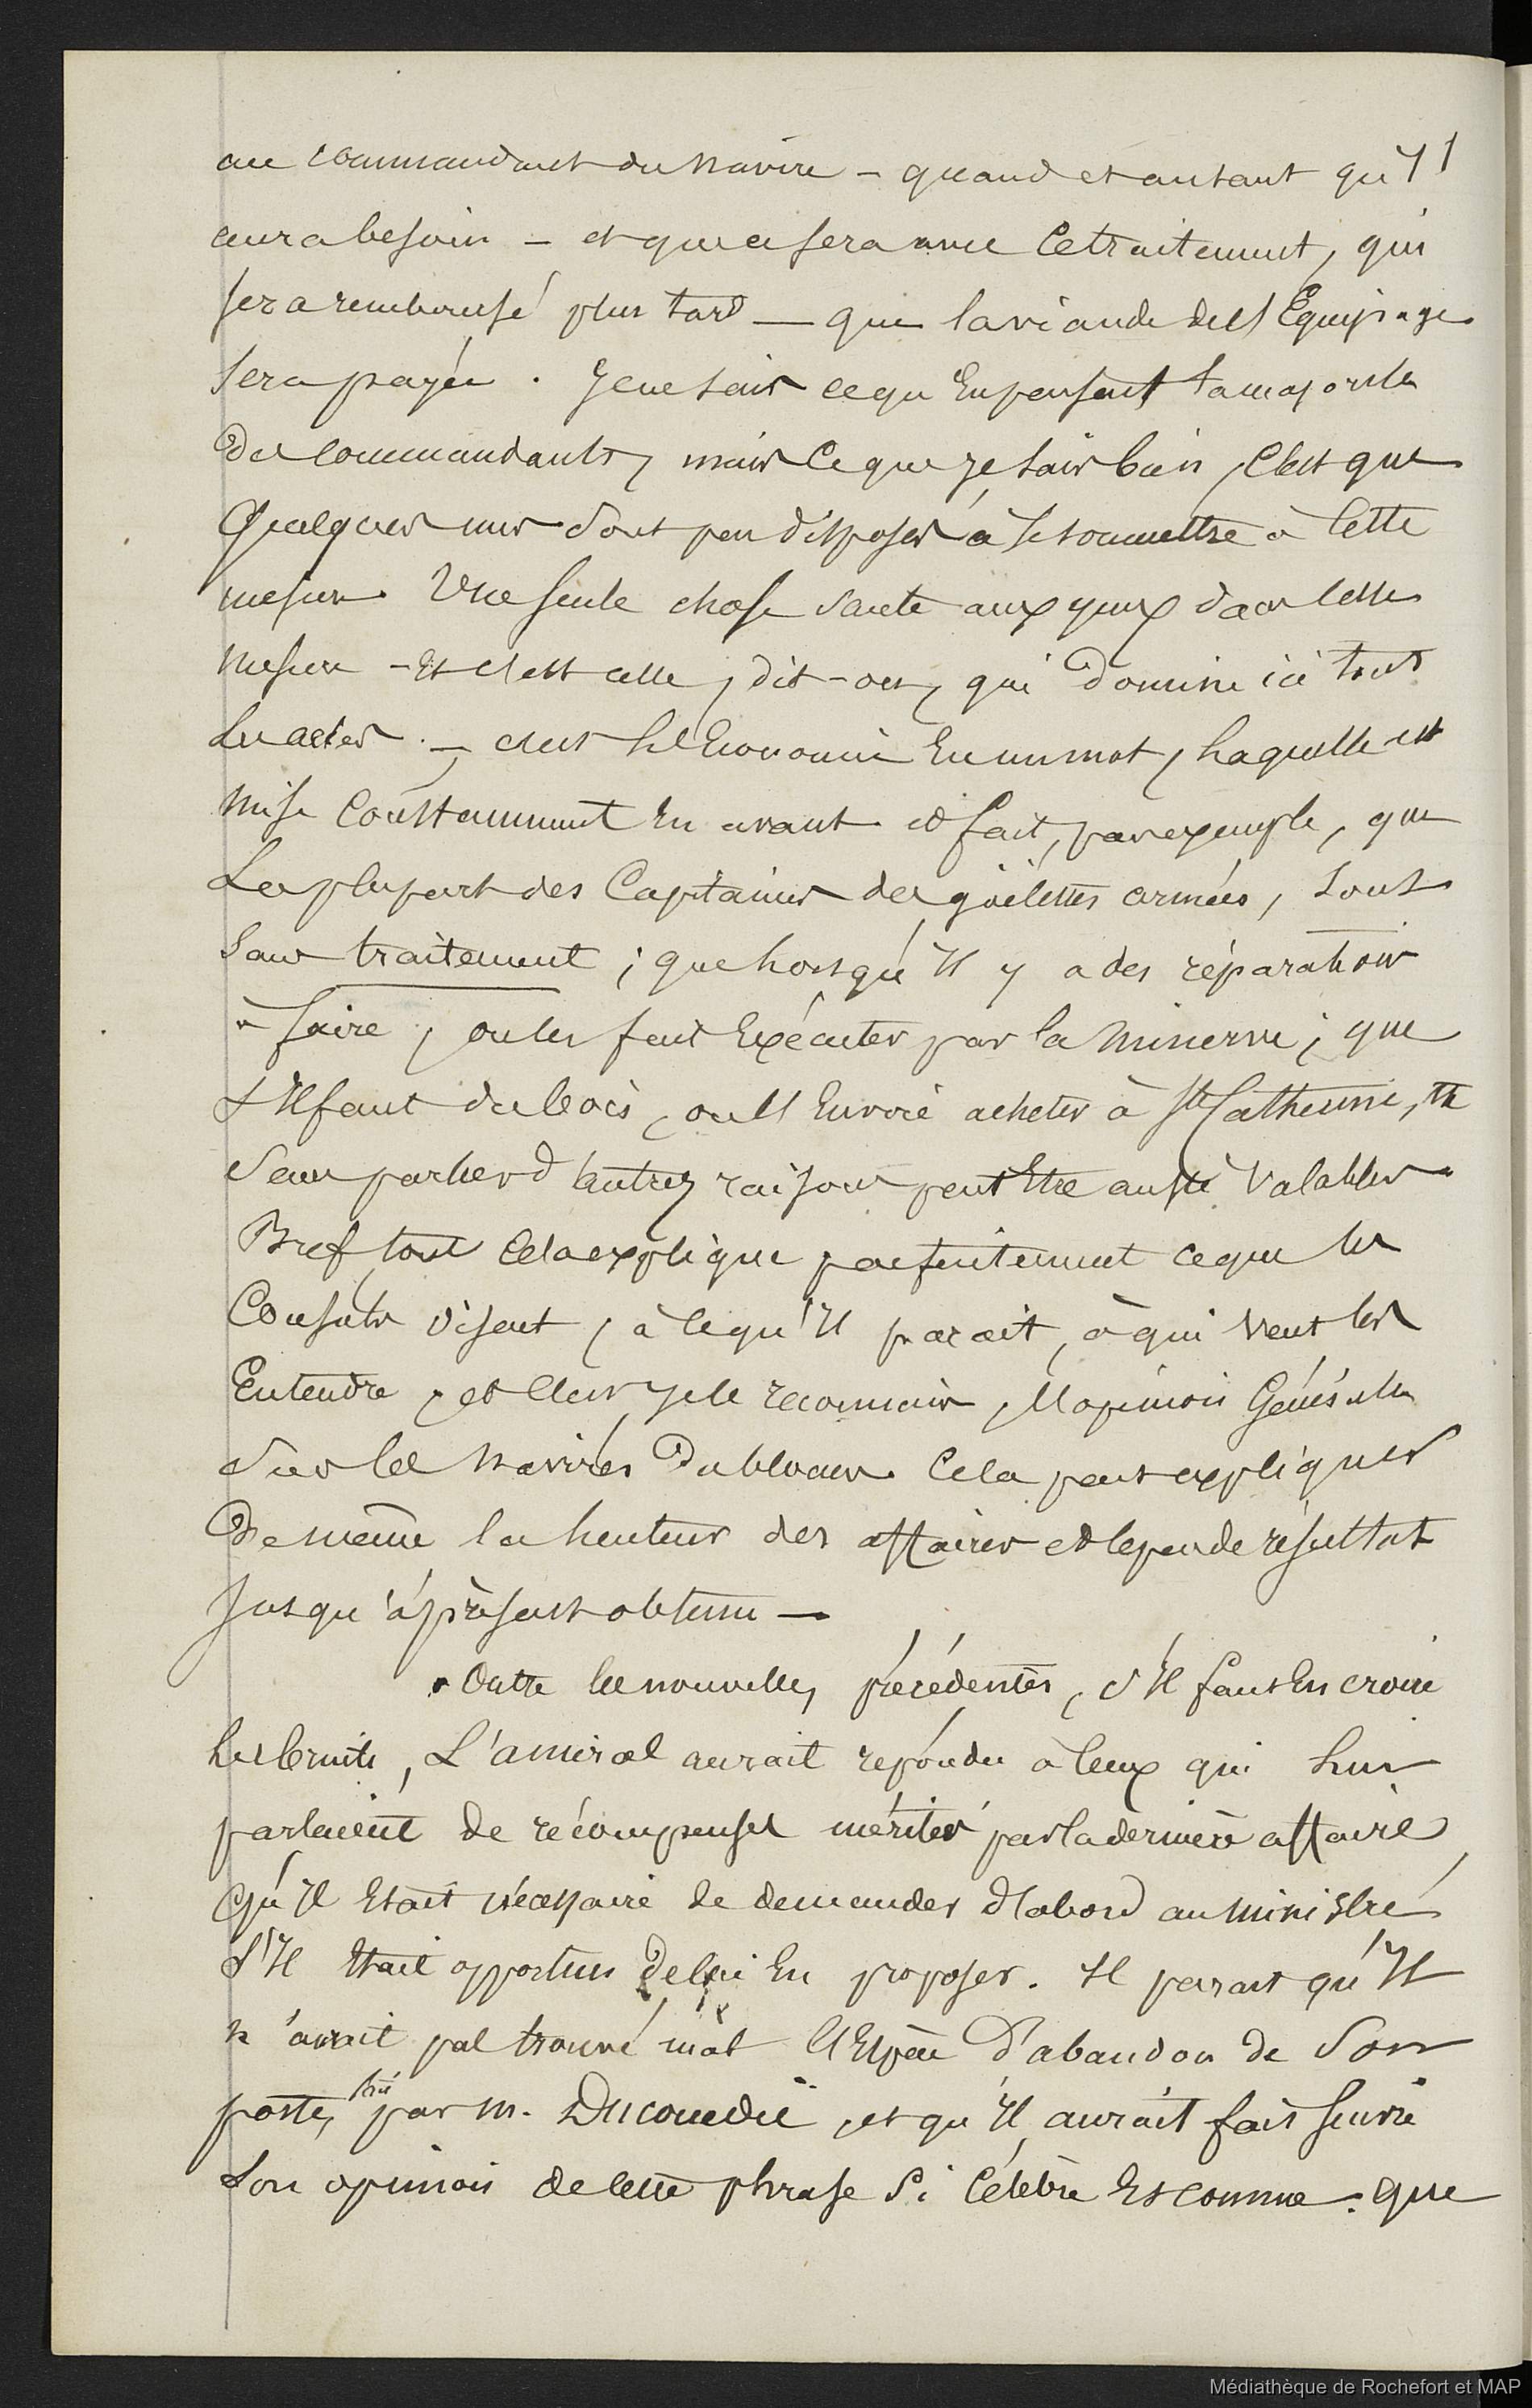 au commandant du navire – quand et autant qu'Il
aura besoin – et que ce sera avec ce traitement, qui
sera remboursé plus tard — que la viande de l'Équipage
sera payée. Je ne sais ce qu'En pensent la majorité
Des Commandants, mais Ce que je sais bien, C'est que
Quelques uns sont peu disposés à se soumettre à cette
mesure. Une seule chose saute aux yeux dans cette
mesure – Et c'est celle, dit-on, qui Domine ici tous
les actes. – c'est L'Economie En un mot, Laquelle est
mise Constamment En avant et fait, par exemple, que
La plupart des Capitaines des goëlettes armées, sont
sans traitement ; que Lorsqu'Il y a des réparations
à faire, on les fait Exécuter par la Minerve ; que
s'Il faut du bois, on l'Envoie acheter à Ste Catherine, &a
Sans parler d'autres raisons peut Etre aussi valables.
Bref tout Cela explique parfaitement ce que les
Consuls disent, à ce qu'Il parait, à qui veut les
Entendre, et C'est, je le reconnais, l'opinion Générale
Sur les navires Du blocus. Cela peut expliquer
De même la Lenteur des affaires et le peu de résultat
Jusqu'à présent obtenu —
Outre les nouvelles précédentes, s'Il faut En croire
Les bruits, L'amiral aurait répondu à Ceux qui Lui
parlaient de récompenses méritées par la dernière affaire,
Qu'Il Etait nécessaire de demander d'abord au Ministre
S'Il Etait opportun De lui En proposer. Il parait qu'Il
n'aurait pas trouvé mal l'Espèce D'abandon de Son
poste, par M. Ducouedic, et qu'Il aurait fait suivre
Son opinion de cette phrase si Célèbre Et connue : que